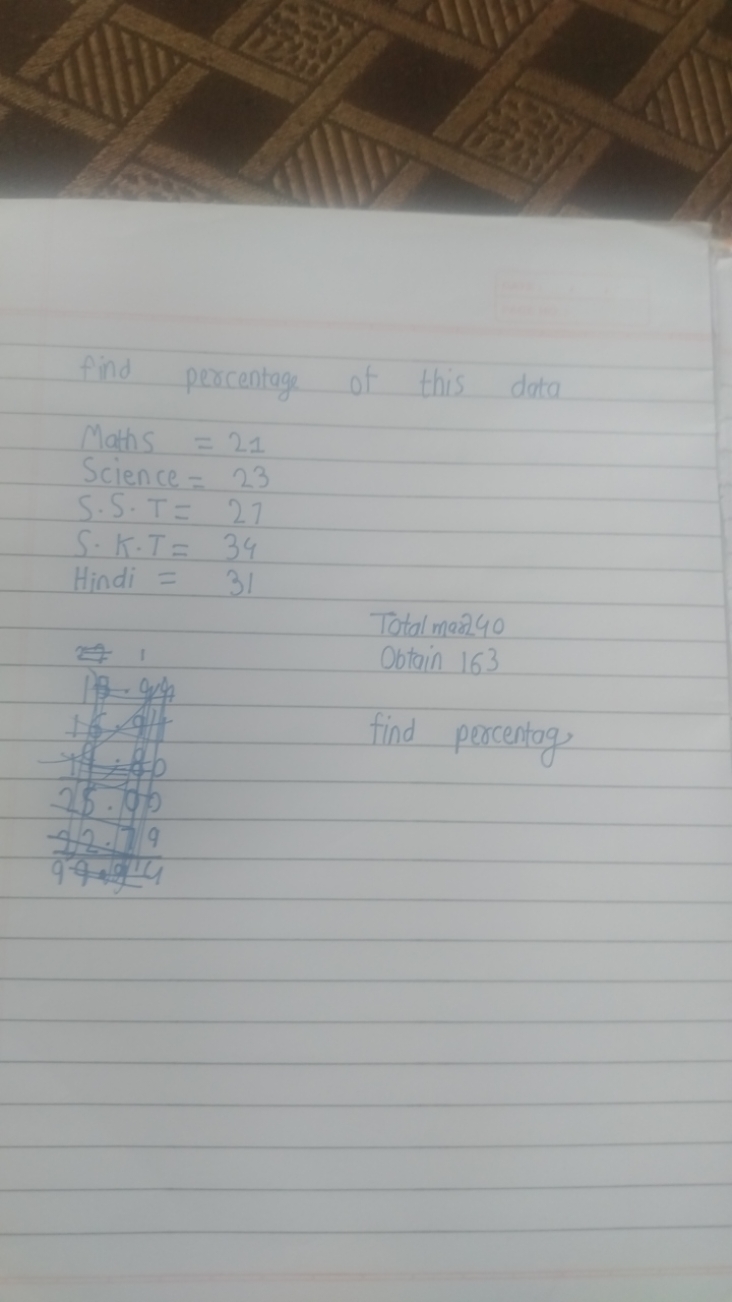 find percentage of this data
Maths = 21
Science = 23
S.S.T = 27
S.K.T = 34
Hindi = 31
Total mar240
Obtain 163
find percentag